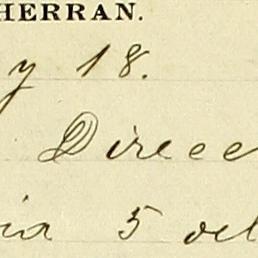 HERRAN.
y 18.
Direcc
ia 5 del